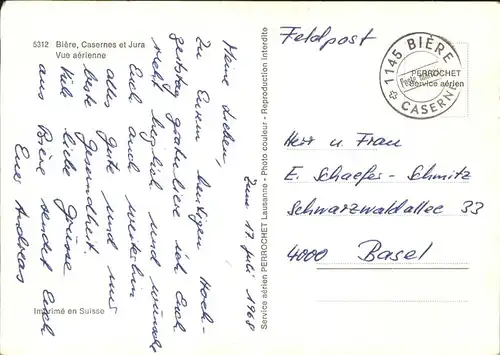 5312 Bière, Casernes et Jura
Vue aérienne
Zum 17 Juli 1968
Meine Lieben,
Zu Eurem heutigen Hoch-
zeitstag gratuliere ich Euch
recht herzlich und wünsche
Euch auch weiterhin
alles gute und nur
beste Gesundheit.
Viele liebe Grüsse
aus Bière sendet Euch
Euer Andreas
Imprimé en Suisse 7
Service aérien PERROCHET Lausanne - Photo couleur - Reproduction interdite
Feldpost
1145 BIÈRE
CASERNE
PERROCHET
Service aérien
Herr u. Frau
E. Schaefer-Schmitz
Schwarzwaldallee 33
4000 Basel